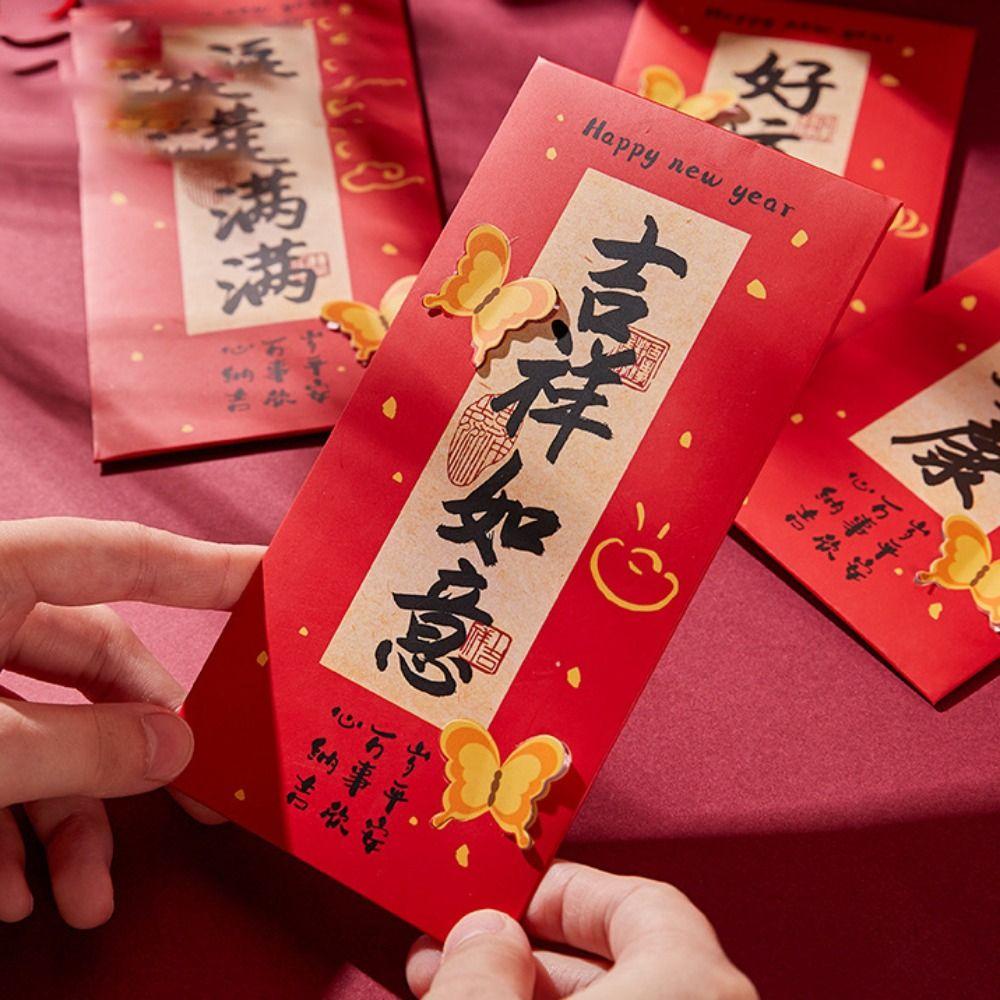 Happy new year
吉祥如意
吉祥
岁平安
万事欣
心纳吉
满满
岁平安
万事欣
心纳吉
Happy new year
好
康
岁平安
万事欣
心纳吉